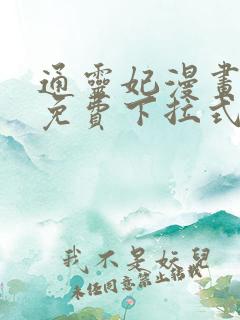 通靈妃漫畫
免費下拉式
我不是妖兒
未任同意禁止轉載